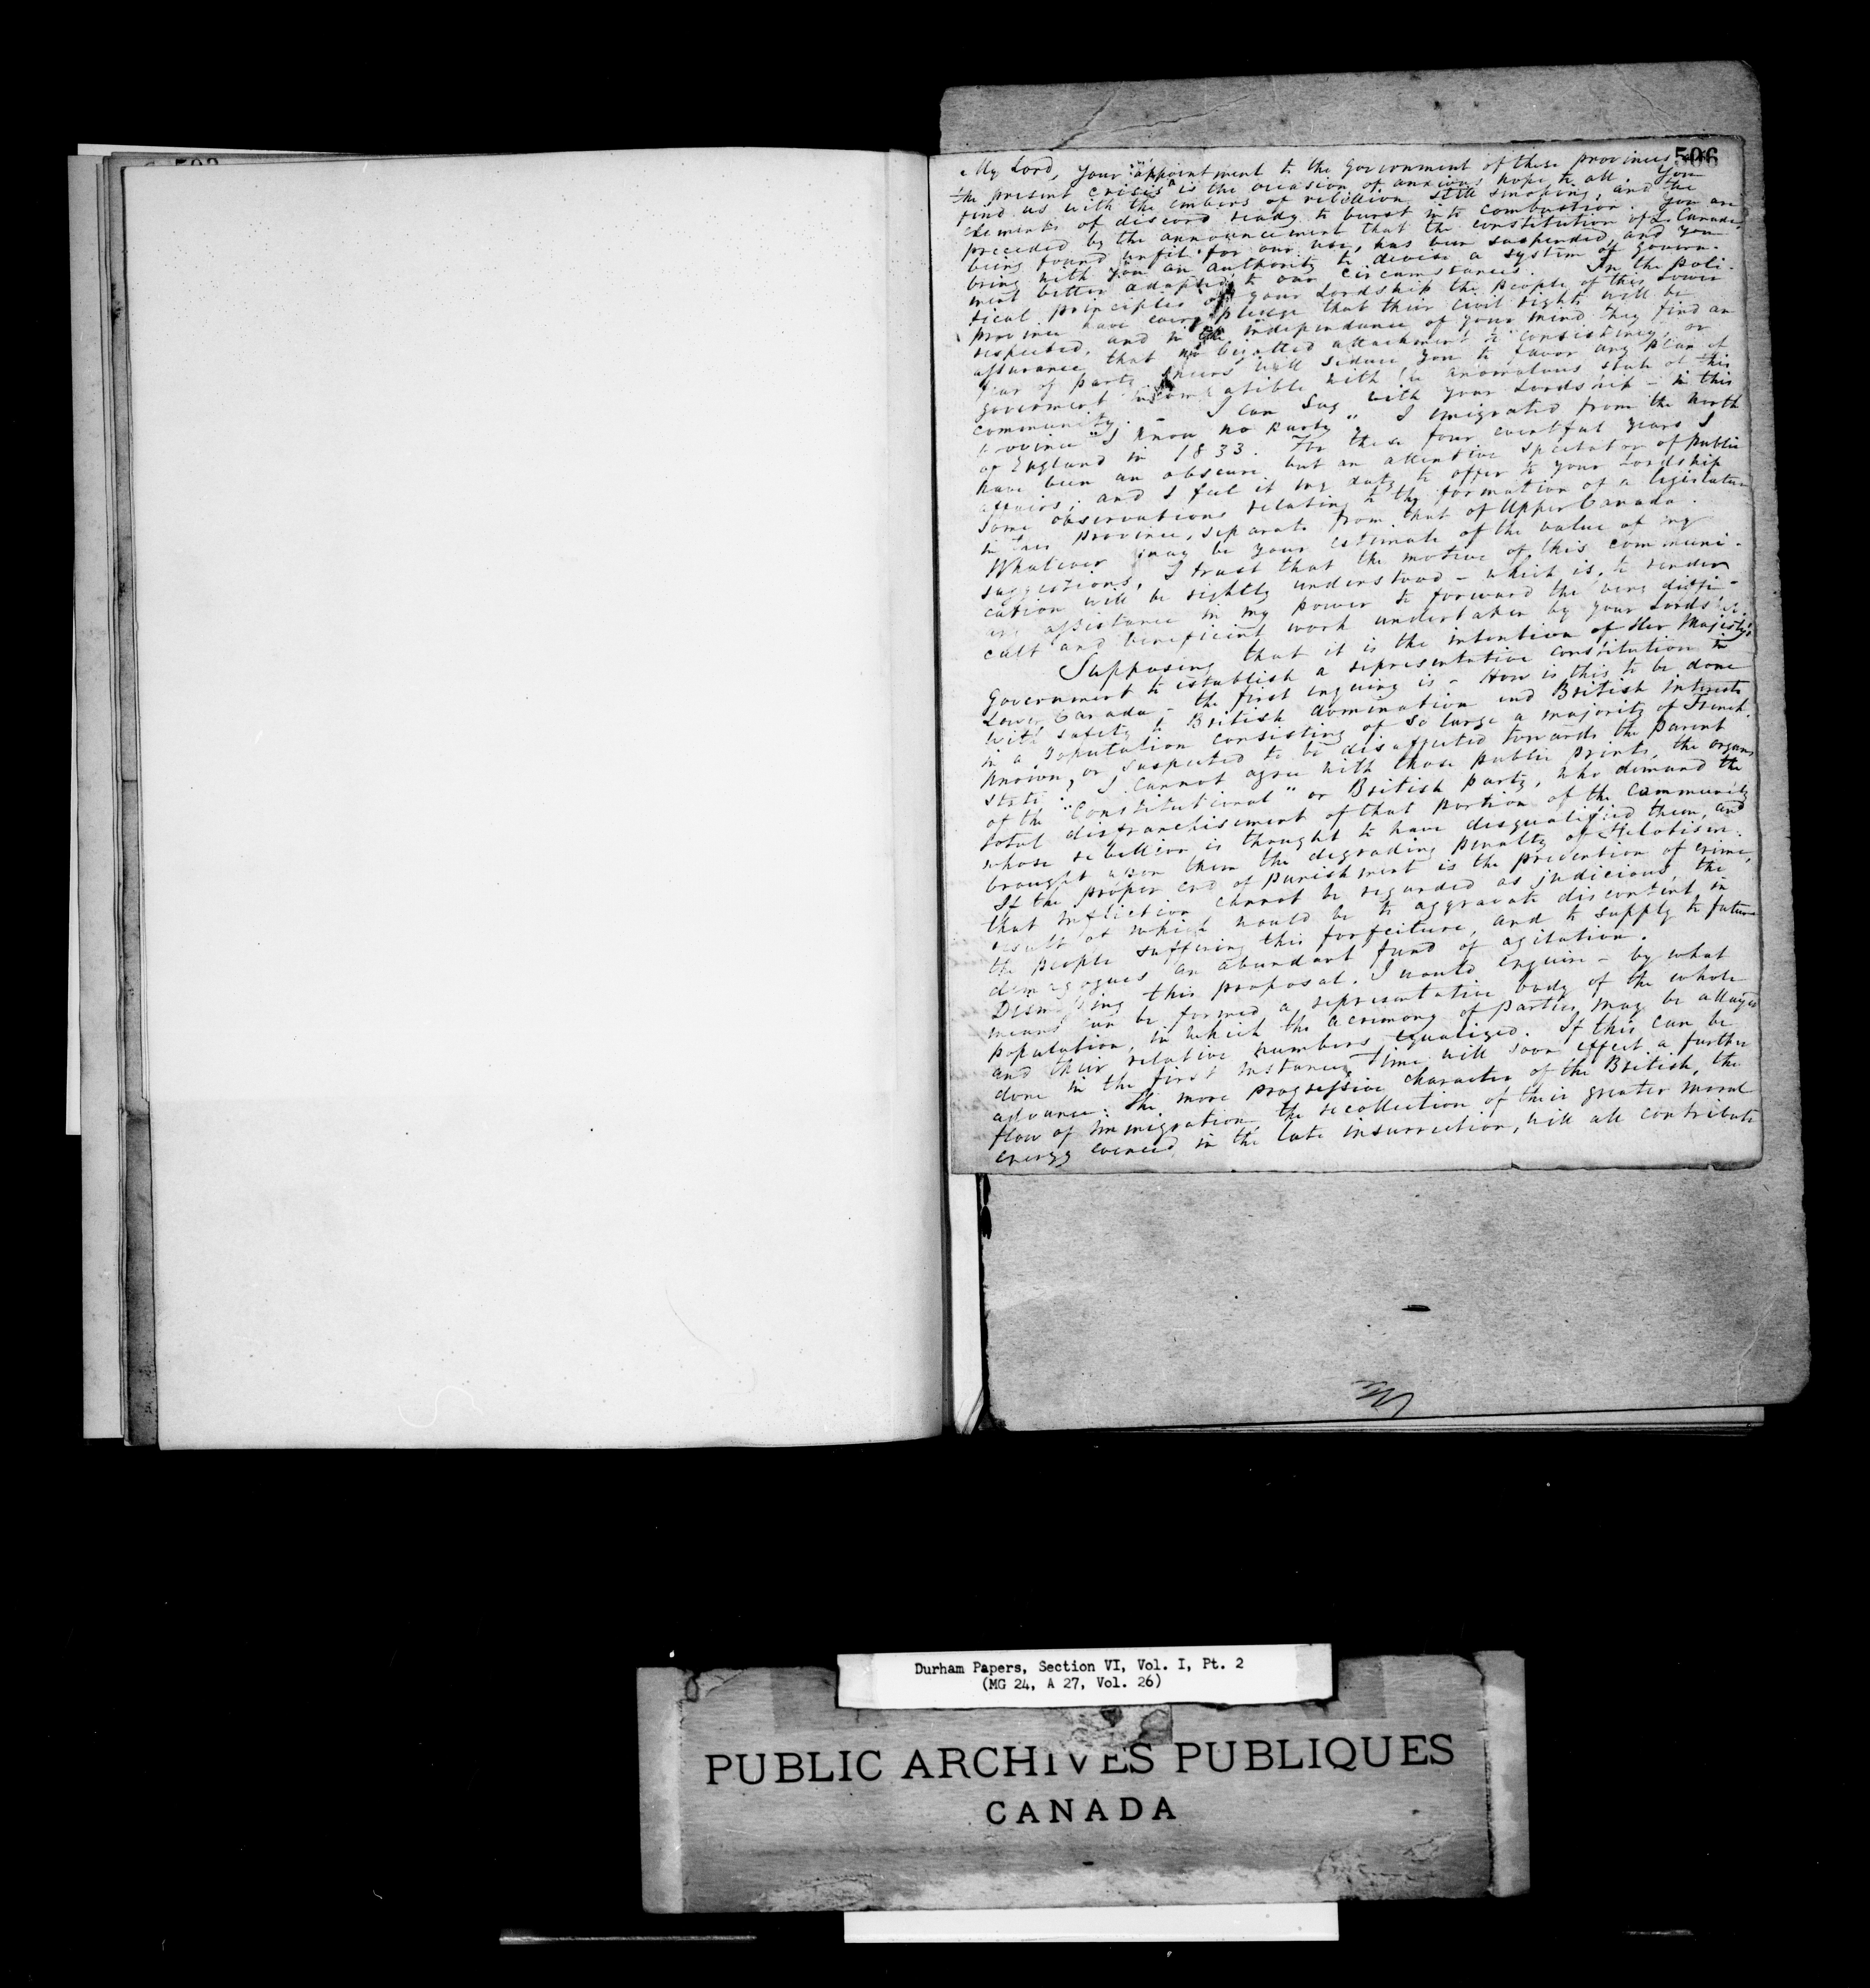 506
My Lord, your appointment to the government of these provinces in
the present crisis is the occasion of anxious hope to all. You
find us with the embers of rebellion still smoking, and the
elements of discord ready to burst into combustion. You are
preceded by the announcement that the constitution of L. Canada,
being found unfit for our use, has been suspended, and you
bring with you an authority to devise a system of govern-
ment better adapted to our circumstances. In the poli-
tical principles of your Lordship the people of this Lower
province have every pledge that their civil rights will be
respected, and in the independance of your mind they find an
assurance that no bigotted attachment to consistency, or
fear of party sneers will seduce you to favor any plan of
goverment incompatible with the anomalous state of this
community. I can say with your Lordship - in this
province "I know no party". I emigrated from the North
of England in 1833. For these four eventful years I
have been an obscure but an attentive spectator of public
affairs; and I feel it my duty to offer to your Lordship
some observations relating to the formation of a legislature
in this province, separate from that of Upper Canada.
Whatever may be your estimate of the value of my
suggestions, I trust that the motive of this communi-
cation will be rightly understood - which is, to render
any assistance in my power to forward the very diffi-
cult and beneficient work undertaken by your Lordship.
Supposing that it is the intention of Her Majesty's
Government to establish a representative constitution in
Lower Canada - the first inquiry is - How is this to be done
with safety to British domination and British interests
in a population consisting of so large a majority of French,
known, or suspected to be disaffected towards the parent
state. I cannot agree with those public prints, the organs
of the "Constitutional" or British party, who demand the
total disfranchisement of that portion of the community
whose rebellion is thought to have disqualified them, and
brought upon them the degrading penalty of Helotism.
If the proper end of punishment is the prevention of crime,
that infliction cannot be regarded as judicious, the
result of which would be to aggravate discontent in
the people suffering this forfeiture, and to supply to future
demagogues an abundant fund of agitation.
Dismissing this proposal, I would enquire - by what
means can be formed a representative body of the whole
population, in which the acrimony of parties may be allayed
and their relative numbers equalized. If this can be
done in the first instance, time will soon effect a further
advance. The more progressive character of the British, the
flow of immigration, the recollection of their greater moral
energy evinced in the late insurrection, will all contribute
Durham Papers, Section VI, Vol. I, Pt. 2
(MG 24, A 27, Vol. 26)
PUBLIC ARCHIVES PUBLIQUES
CANADA